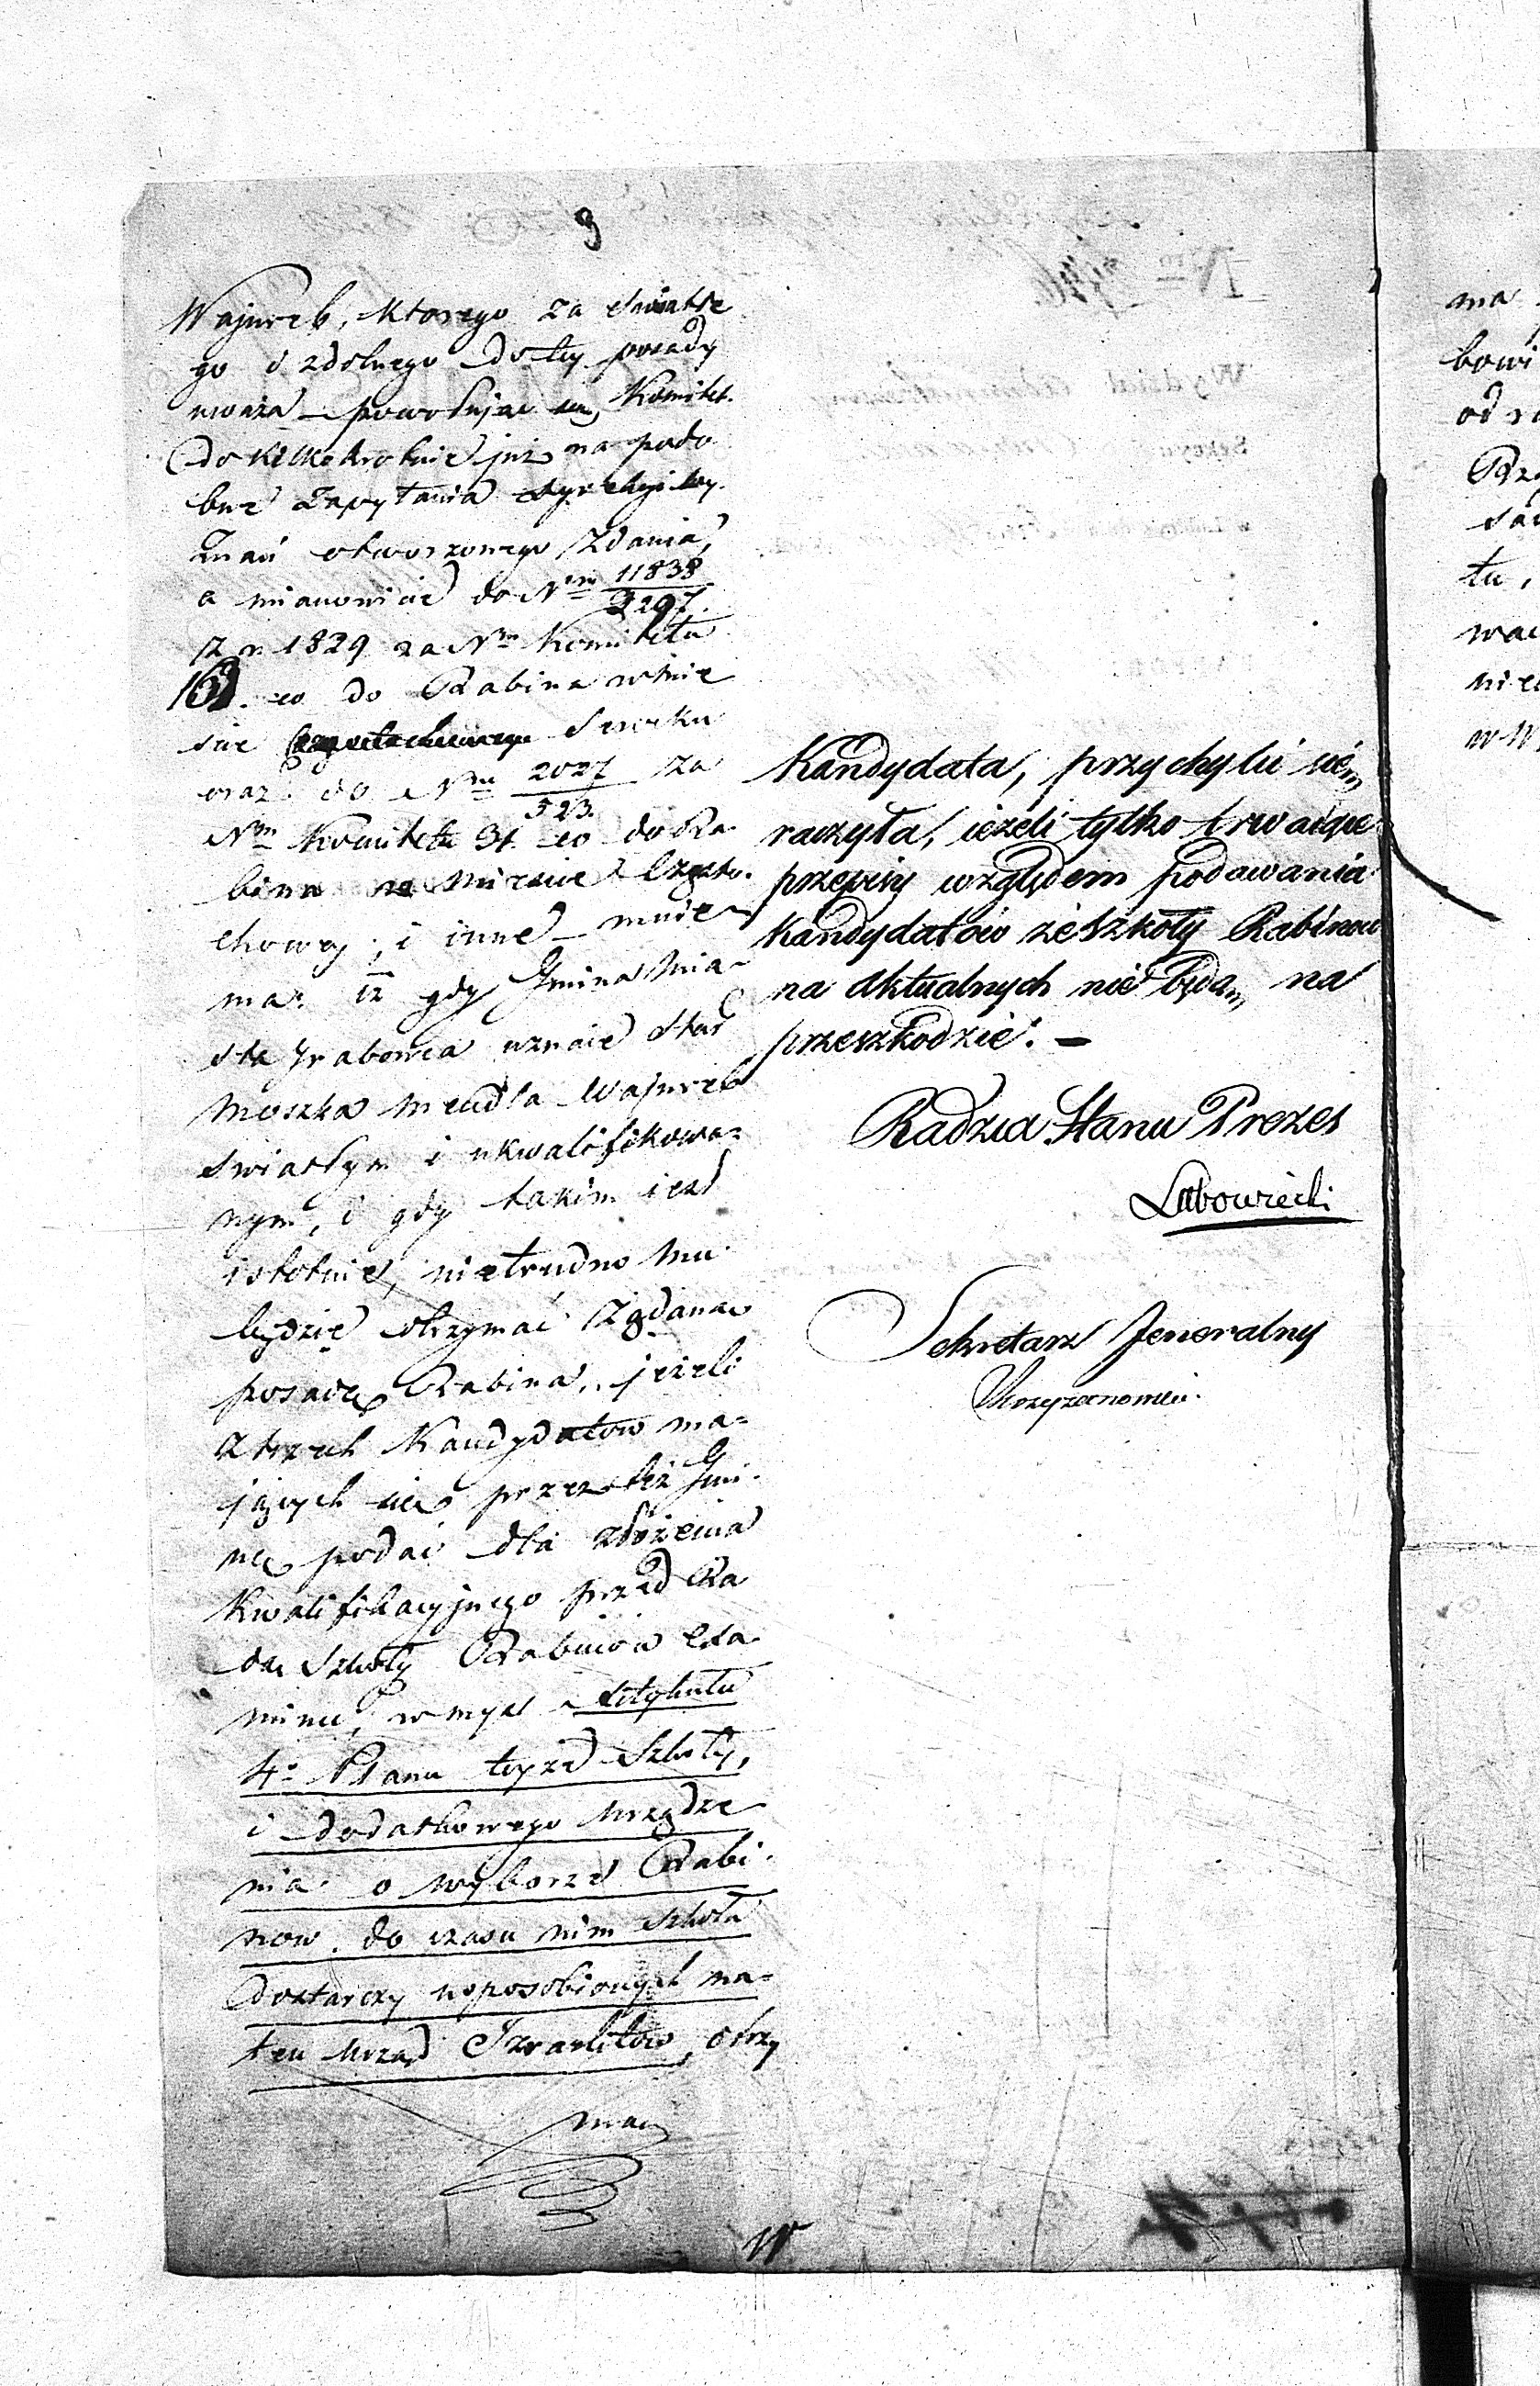 9
Wajnreb, ktorego za swiatłe
go i zdolnego do tey posady
uważa – powołuiąc się Komitet
do kilkakrotnie już na podo
bne Zapytania
otworzonego Zdania,
a mianowicie do Nrm 11838
2297.
z r. 1829 za Nrm Komitetu
co do Rabina w mie
ście Serocku
oraz do Nru 2027 za
523.
Nrm Komitetu 31 co do Ra
bina w Mieście Częstu.
chowy, i inne – mnie
ma: iż gdy Gmina Mia-
sta Grabowca uznaie Star
Moszka Mendla Wajnreb
swiatłym i ukwalifikowa-
nym, i gdy takim iest
istotnie, nietrudno mu
będzie otrzymać żądaną
posadę Rabina, jeżeli
z trzech Kandydatow ma-
jących się przez też Gmi-
nę podać dla złożenia
kwalifikacyjnego przed Ra
dą Szkoły Rabinów Exa
minu, w myśl Artykułu
4º Planu teyże Szkoły,
i dodatkowego Urządze
nia o wyborze Rabi-
now. do czasu nim Szkoła
dostarczy usposobionych na-
ten Urząd Izraelitow, otrzy
mać
Kandydata, przychylić się
raczyła, ieżeli tylko trwaiące
przepisy względem podawania
Kandydatów ze Szkoły Rabinow
na aktualnych nie będą na
przeszkodzie. –
Radzca Stanu Prezes
Lubowiecki
Sekretarz Jeneralny
W
ma
bowi
od
tu,